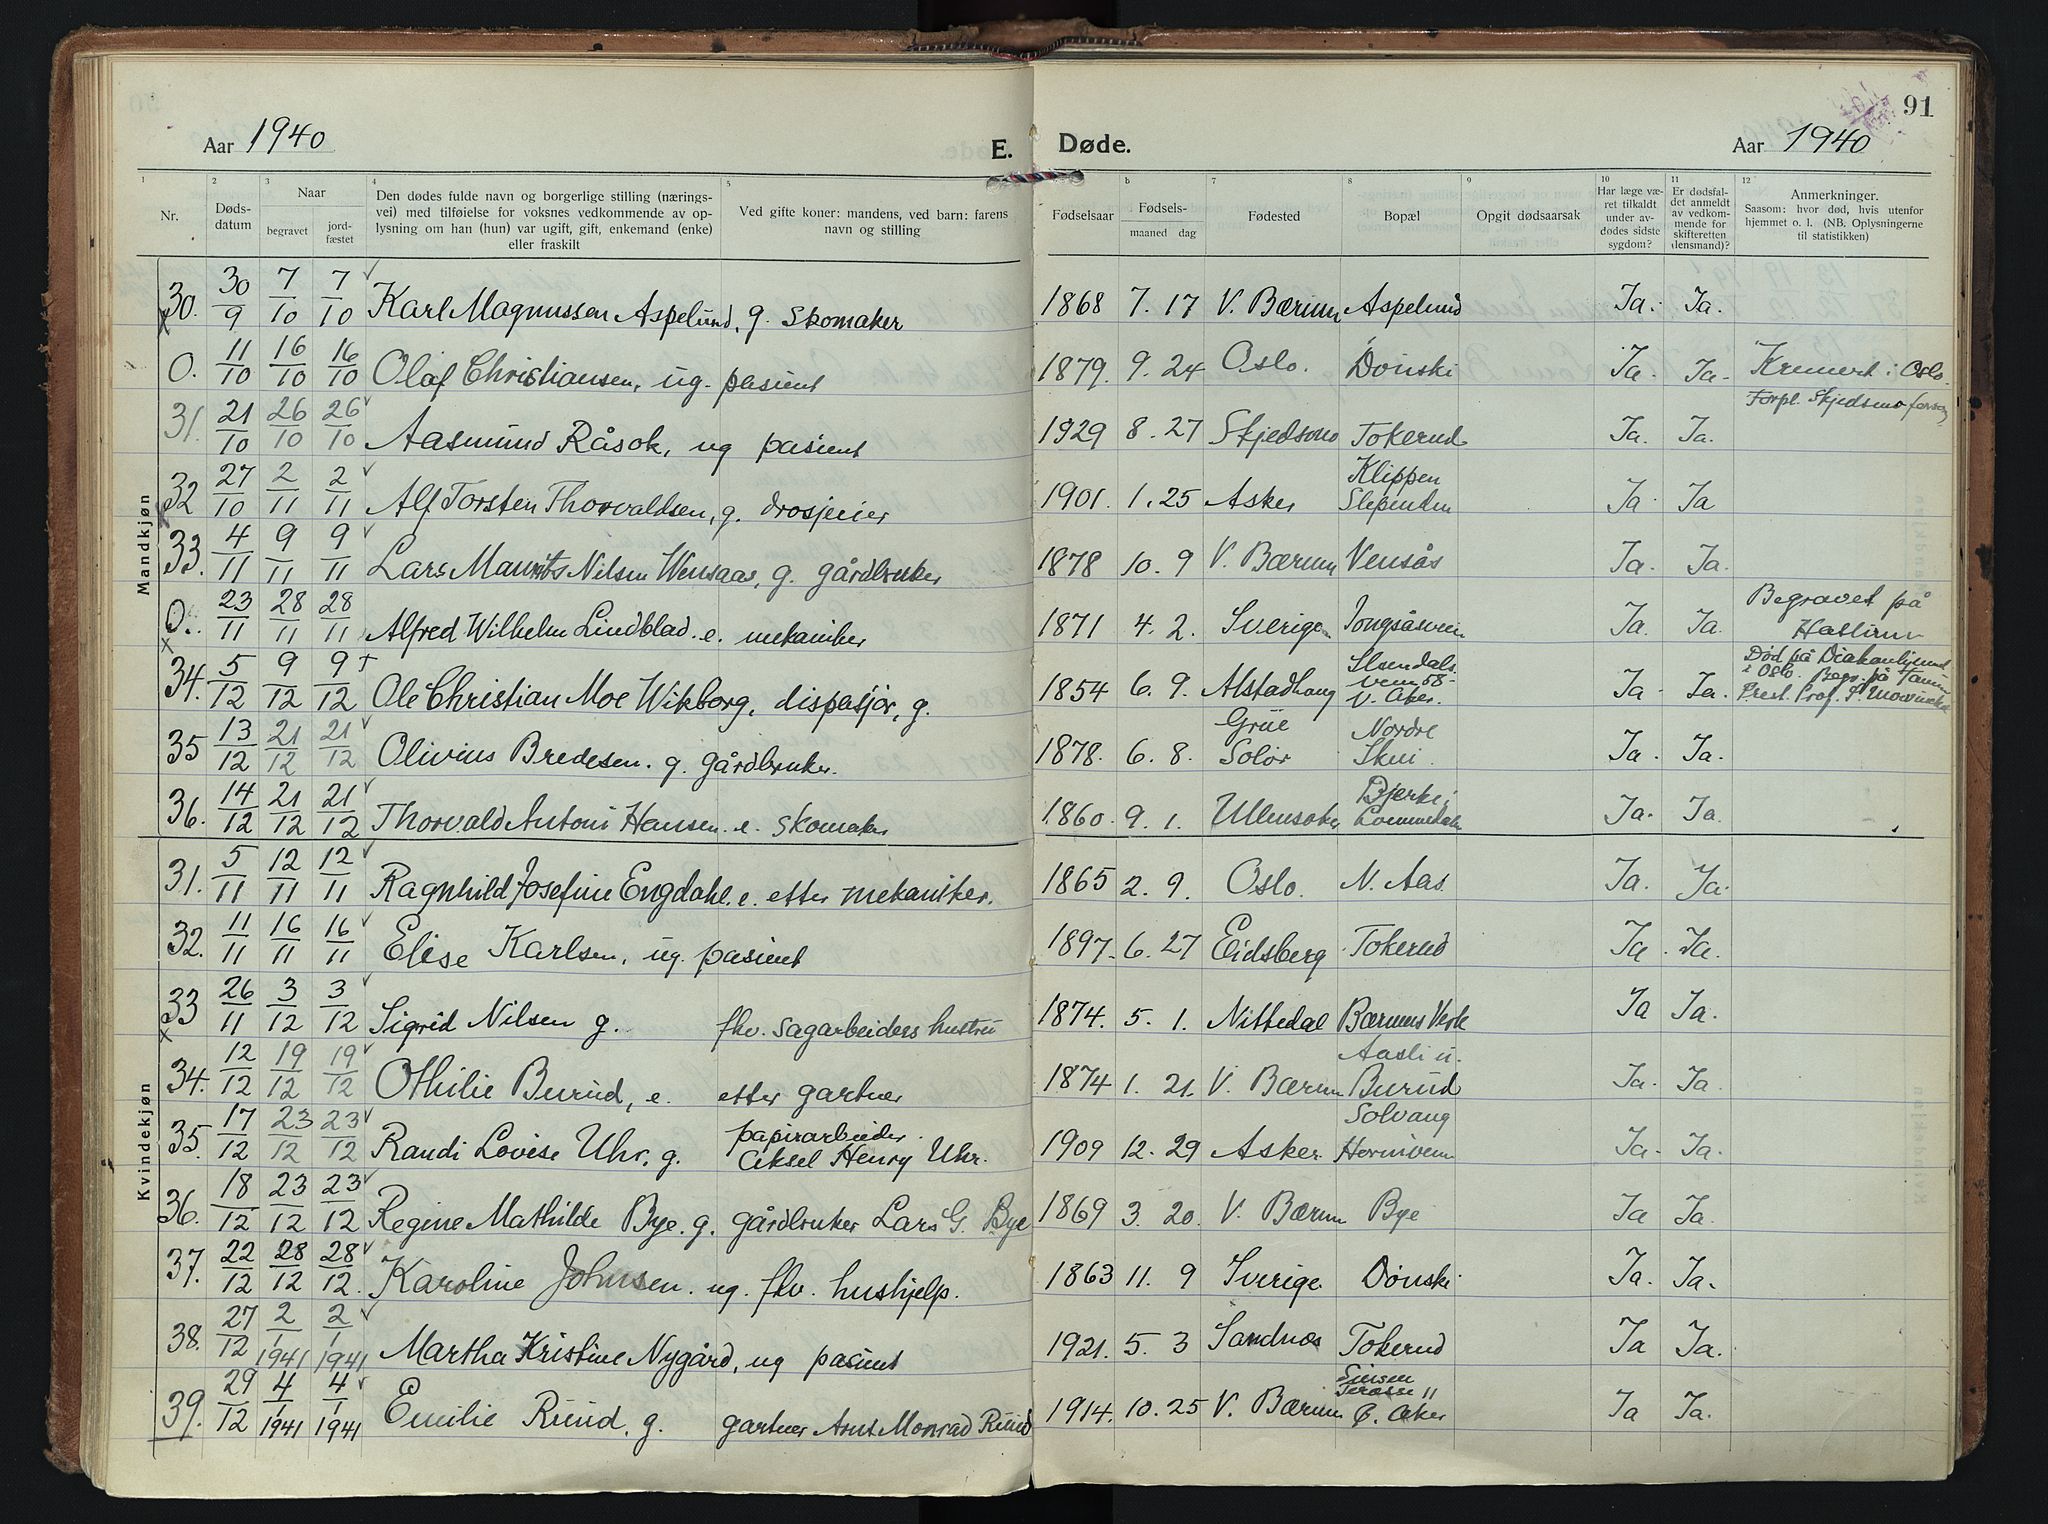 91
Aar 1940 E. Døde. Aar 1940
1 2 3 4 5 6 7 8 9 10 11 12
Nr. Døds-datum Naar begravet jord-fæstet Den dødes fulde navn og borgerlige stilling (nærings-vei) med tilføielse for voksnes vedkommende av op-lysning om han (hun) var ugift, gift, enkemand (enke) eller fraskilt Ved gifte koner: mandens, ved barn: farens navn og stilling Fødselsaar Fødsels-maaned dag Fødested Bopæl Opgit dødsaarsak Har læge væ-ret tilkaldt under av-dødes sidste sygdom? Er dødsfal-det anmeldt av vedkom-mende for skifteretten (lensmand)? Anmerkninger. Saasom: hvor død, hvis utenfor hjemmet o. l. (NB. Oplysningerne til statistikken)
Mandkjøn
30. 30/9 7/10 7/10 Karl Magnussen Aspelund, g. skomaker 1868 7. 17 V. Bærum Aspelund Ja. Ja.
0. 11/10 16/10 16/10 Olaf Christiansen, ug. pasient 1879. 9. 24 Oslo. Dønski Ja. Ja. Kremert i Oslo.
31. 21/10 26/10 26/10 Aasmund Råsok, ug pasient 1929 8. 27 Skjedsmo Tokerud Ja. Ja. Forpl. Skjedsmo
32 27/10 2/11 2/11 Alf Torsten Thorvaldsen, g. drosjeeier 1901. 1. 25 Asker Klippen Slependen Ja. Ja
33. 4/11 9/11 9/11 Lars Maurits Nilsen Wensaas, g. gårdbruker 1878 10. 9 V. Bærum Vensås Ja. Ja.
0. 23/11 28/11 28/11 Alfred Wilhelm Lindblad. e. mekaniker 1871 4. 2. Sverige Jongsåsveien Ja. Ja. Begravet på Haslum
34. 5/12 9/12 9/12 Ole Christian Moe Wikborg, dispasjør, g. 1854 6. 9. Alstadhaug V. Aker. Ja. Ja. Død på Diakonhjemmet i Oslo. Begr. på Tanum Prest. Prof.
35 13/12 21/12 21/12 Olivius Bredesen. g. gårdbruker. 1878. 6. 8. Grue Solør Nordre Skui. Ja. Ja.
36. 14/12 21/12 21/12 Thorvald Antoni Hansen. e. skomaker 1860. 9. 1. Ullensaker Bjerke, Lommedalen Ja. Ja.
Kvindekjøn
31. 5/11 12/11 12/11 Ragnhild Josefine Engdahl. e. etter mekaniker. 1865 2. 9. Oslo. N. Aas Ja. Ja.
32. 11/11 16/11 16/11 Elise Karlsen, ug. pasient 1897. 6. 27 Eidsberg Tokerud Ja. Ja.
33 26/11 3/12 3/12 Sigrid Nilsen g. fhv. sagarbeiders hustru 1874. 5. 1. Nittedal Bærums Verk Ja Ja.
34. 12/12 19/12 19/12 Othilie Burud, e. etter gartner 1874 1. 21. V. Bærum Aasli u. Burud Ja. Ja.
35. 17/12 23/12 23/12 Randi Lovise Uhr. g. papirarbeider. Aksel Henry Uhr. 1909 12. 29 Asker Solvang Ja. Ja.
36. 18/12 23/12 23/12 Regine Mathilde Bye. g. gårdbruker Lars G. Bye 1869 3. 20. V. Bærum Bye Ja Ja.
37. 22/12 28/12 28/12 Karoline Johnsen. ug. fhv. hushjelp. 1863 11. 9 Sverige Dønski Ja. Ja.
38. 27/12 2/1 1941 2/1 1941 Martha Kristine Nygård, ug pasient 1921. 5. 3 Sandnes Tokerud Ja Ja.
39. 29/12 4/1 1941 4/1 1941 Emilie Ruud. g. gartner Arnt Monrad Ruud 1914. 10. 25 V. Bærum Sinsen Terasse 11 Ø. Aker Ja Ja.